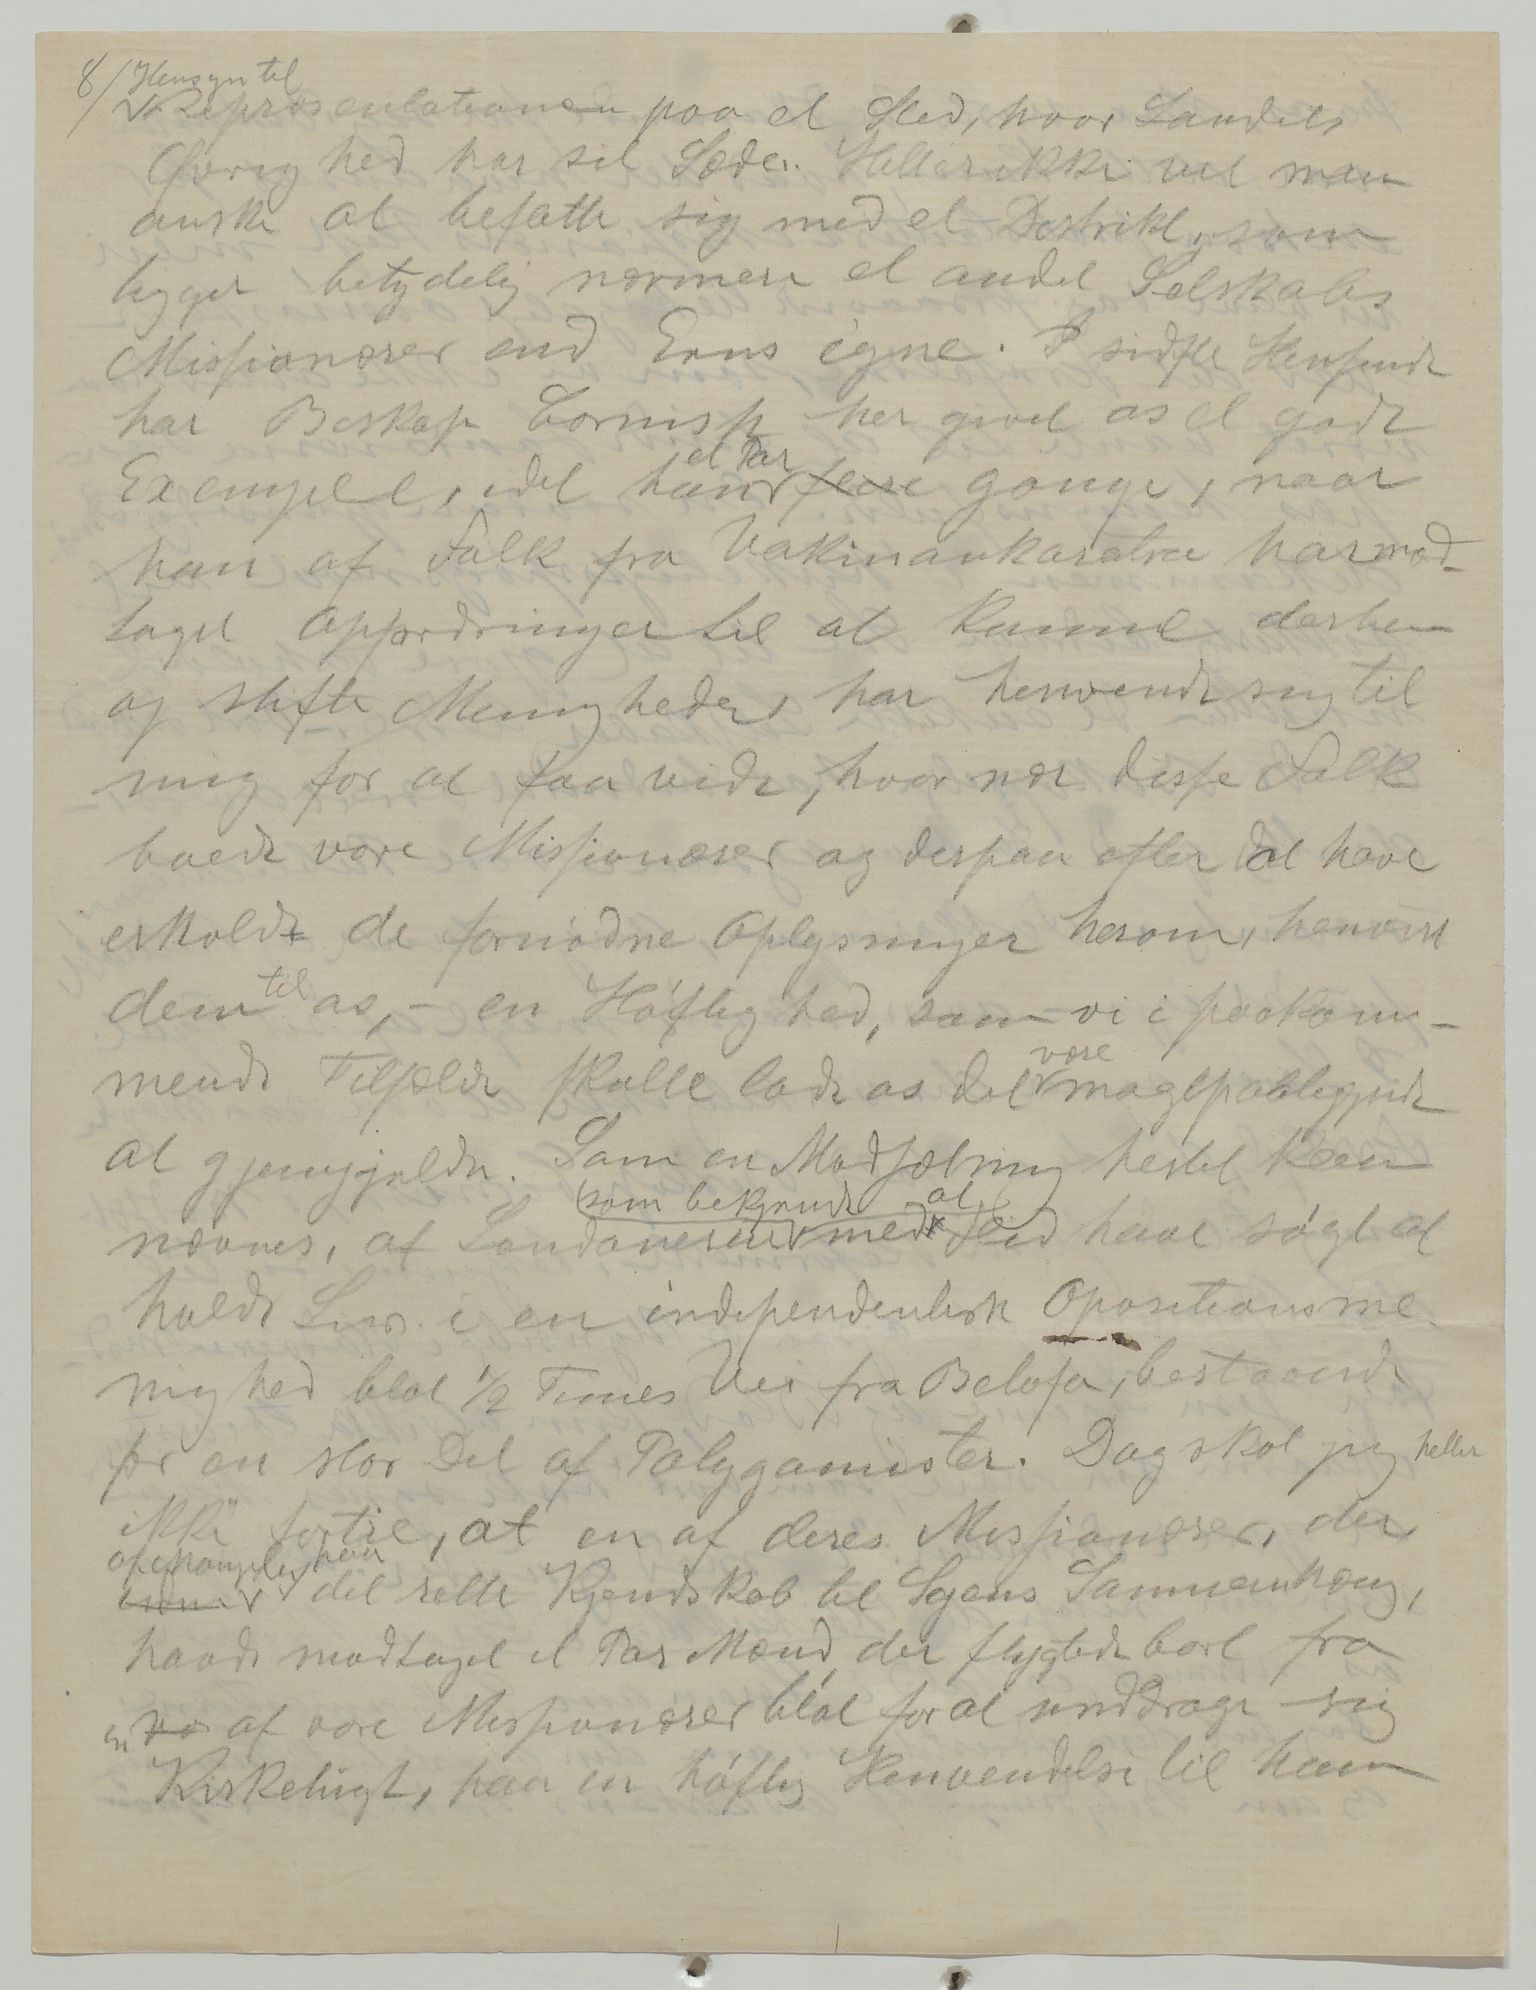 8/ Hensyn til
Repræsentationen paa et Sted, hvor Landets
Øvrighed har sit Sæde. Heller ikke vil man
ønske at befatte sig med et Distrikt, som
ligger betydelig nærmere et andet Selskabs
Missionærer end Ens egne. I sidste Henseende
har Biskop Cornish her givet os et godt
Exempel, idet han et Par flere gange, naar
han af Folk fra Vakinankaratra har mod-
taget Opfordringer til at komme derhen
og stifte Menigheder, har henvendt sig til
mig for at faa vide, hvor nær disse Folk
boede vore Missionærer og derpaa efter at have
erholdt de fornødne Oplysninger herom, henvist
dem til os, – en Høflighed, som vi i paakom-
mende Tilfælde skulle lade os det være magtpaaliggende
at gjengjælde. Som en Modsætning hertil kan
nævnes, at (som bekjendt) have søgt at
holde Liv i en independentisk Opositionsme-
nighed blot 1/2 Times Vei fra Betafo, bestaaende
for en stor Del af Polygamister. Dog skal jeg heller
ikke fortie, at en af deres Missionærer, der
af Mangel paa det rette Kjendskab til Sagens Sammenhæng,
havde modtaget et Par Mænd der flygtede bort fra
en af vore Missionærer blot for at unddrage sig
Kirketugt, paa en høflig Henvendelse til ham